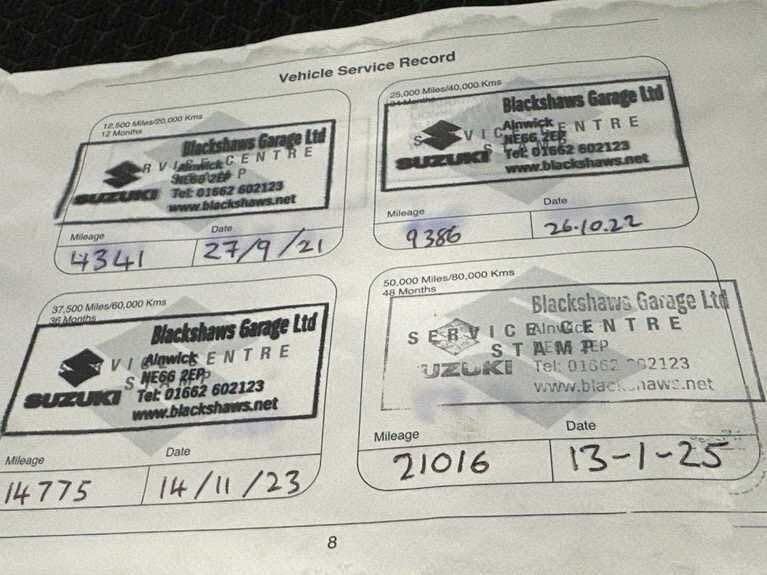 Vehicle Service Record
12,500 Miles/20,000 Kms
12 Months
Blackshaws Garage Ltd
SERVICE CENTRE
Alnwick
NE66 2EP
SUZUKI
Tel: 01662 602123
www.blackshaws.net
Mileage
Date
4341
27/9/21
25,000 Miles/40,000 Kms
24 Months
Blackshaws Garage Ltd
SERVICE CENTRE
Alnwick
NE66 2EP
SUZUKI
Tel: 01662 602123
www.blackshaws.net
Mileage
Date
9386
26.10.22
37,500 Miles/60,000 Kms
36 Months
Blackshaws Garage Ltd
SERVICE CENTRE
Alnwick
NE66 2EP
SUZUKI
Tel: 01662 602123
www.blackshaws.net
Mileage
Date
14775
14/11/23
50,000 Miles/80,000 Kms
48 Months
Blackshaws Garage Ltd
SERVICE CENTRE
STAMP
SUZUKI
Tel: 01662 602123
www.blackshaws.net
Mileage
Date
21016
13-1-25
8